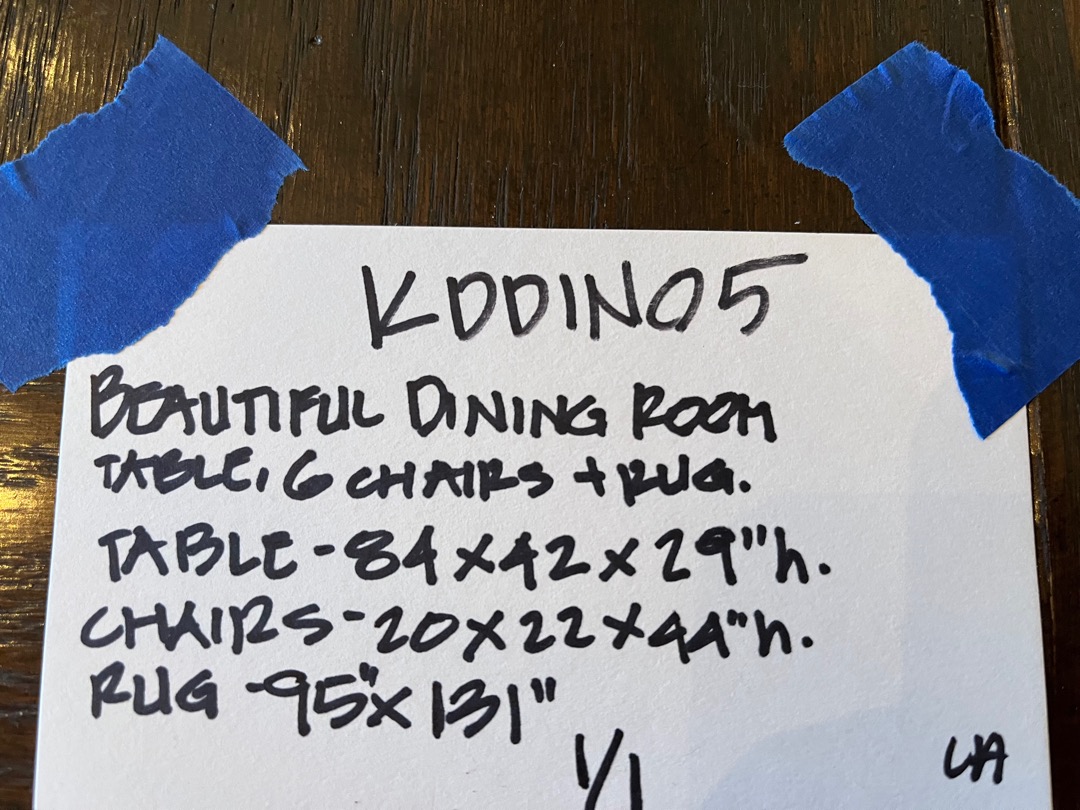 KDDIN05
BEAUTIFUL DINING ROOM
TABLE, 6 CHAIRS + RUG.
TABLE - 84 x 42 x 29" h.
CHAIRS - 20 x 22 x 44" h.
RUG - 95" x 131"
1/1